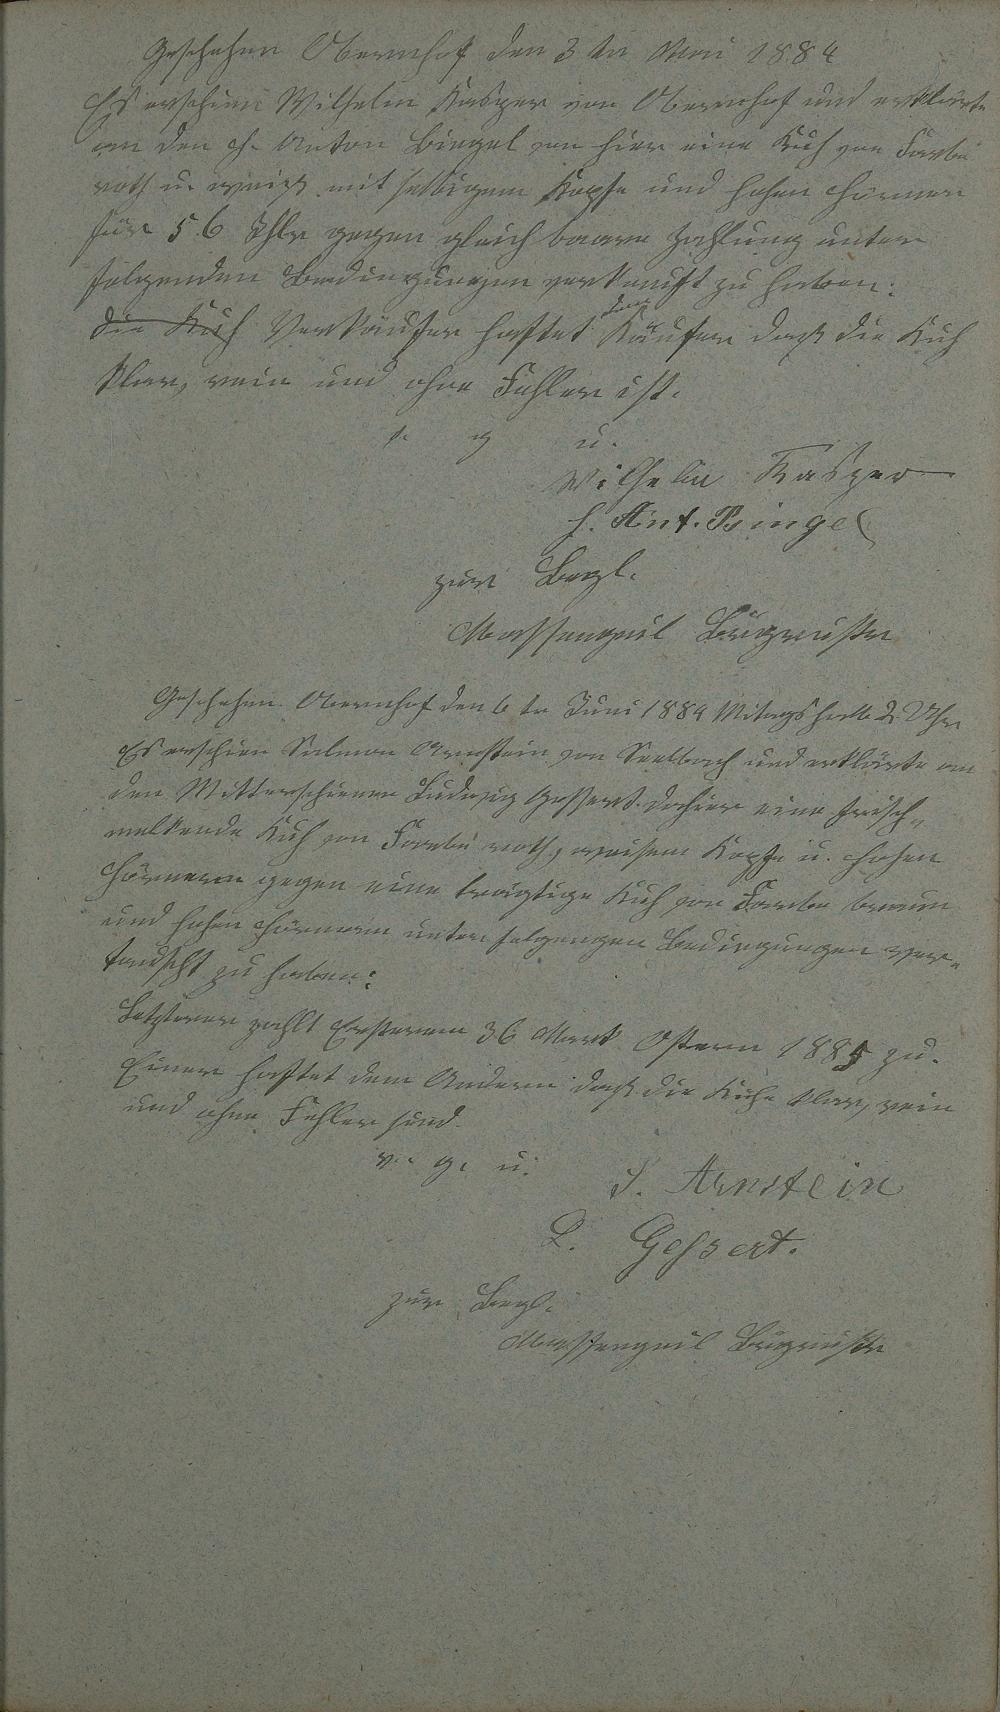 Geschehen Obernhof den 3 ten Mai 1884
Es erschien Wilhelm Kasper von Obernhof und erklärte
an den H. Anton Bingel von hier eine Kuh von Farbe
roth u. weiß mit selbigem Kopfe und hohen Hörnern
für 56 Thlr gegen gleich baare Zahlung unter
folgenden Bedingungen verkauft zu haben:
die Kuh Verkäufer haftet dem Käufer daß die Kuh
klar, rein und ohne Fehler ist.
v. g. u.
Wilhelm Kasper
H. Ant. Bingel
zur Begl.
Massengeil Bürgrmstr
Geschehen Obernhof den 6 ten Juni 1884 Mitags halb 2 Uhr
Es erschien Salmon Arnstein von Seelbach und erklärte an
den Mitterschienen Ludwig Gessert dahier eine frisch-
melkende Kuh von Farbe roth, weisem Kopfe u. hohen
Hörnern gegen eine trägtige Kuh von Farbe braun
und hohen Hörnern unter folgengen Bedingungen ver-
tauscht zu haben:
Letzterer zahlt Ersterem 36 Mark Ostern 1885 zu.
Einer haftet dem Andern daß die Kühe klar, rein
und ohne Fehler sind.
v. g. u.
S. Arnstein
L. Gessert.
zur Begl.
Massengeil Bürgrmstr